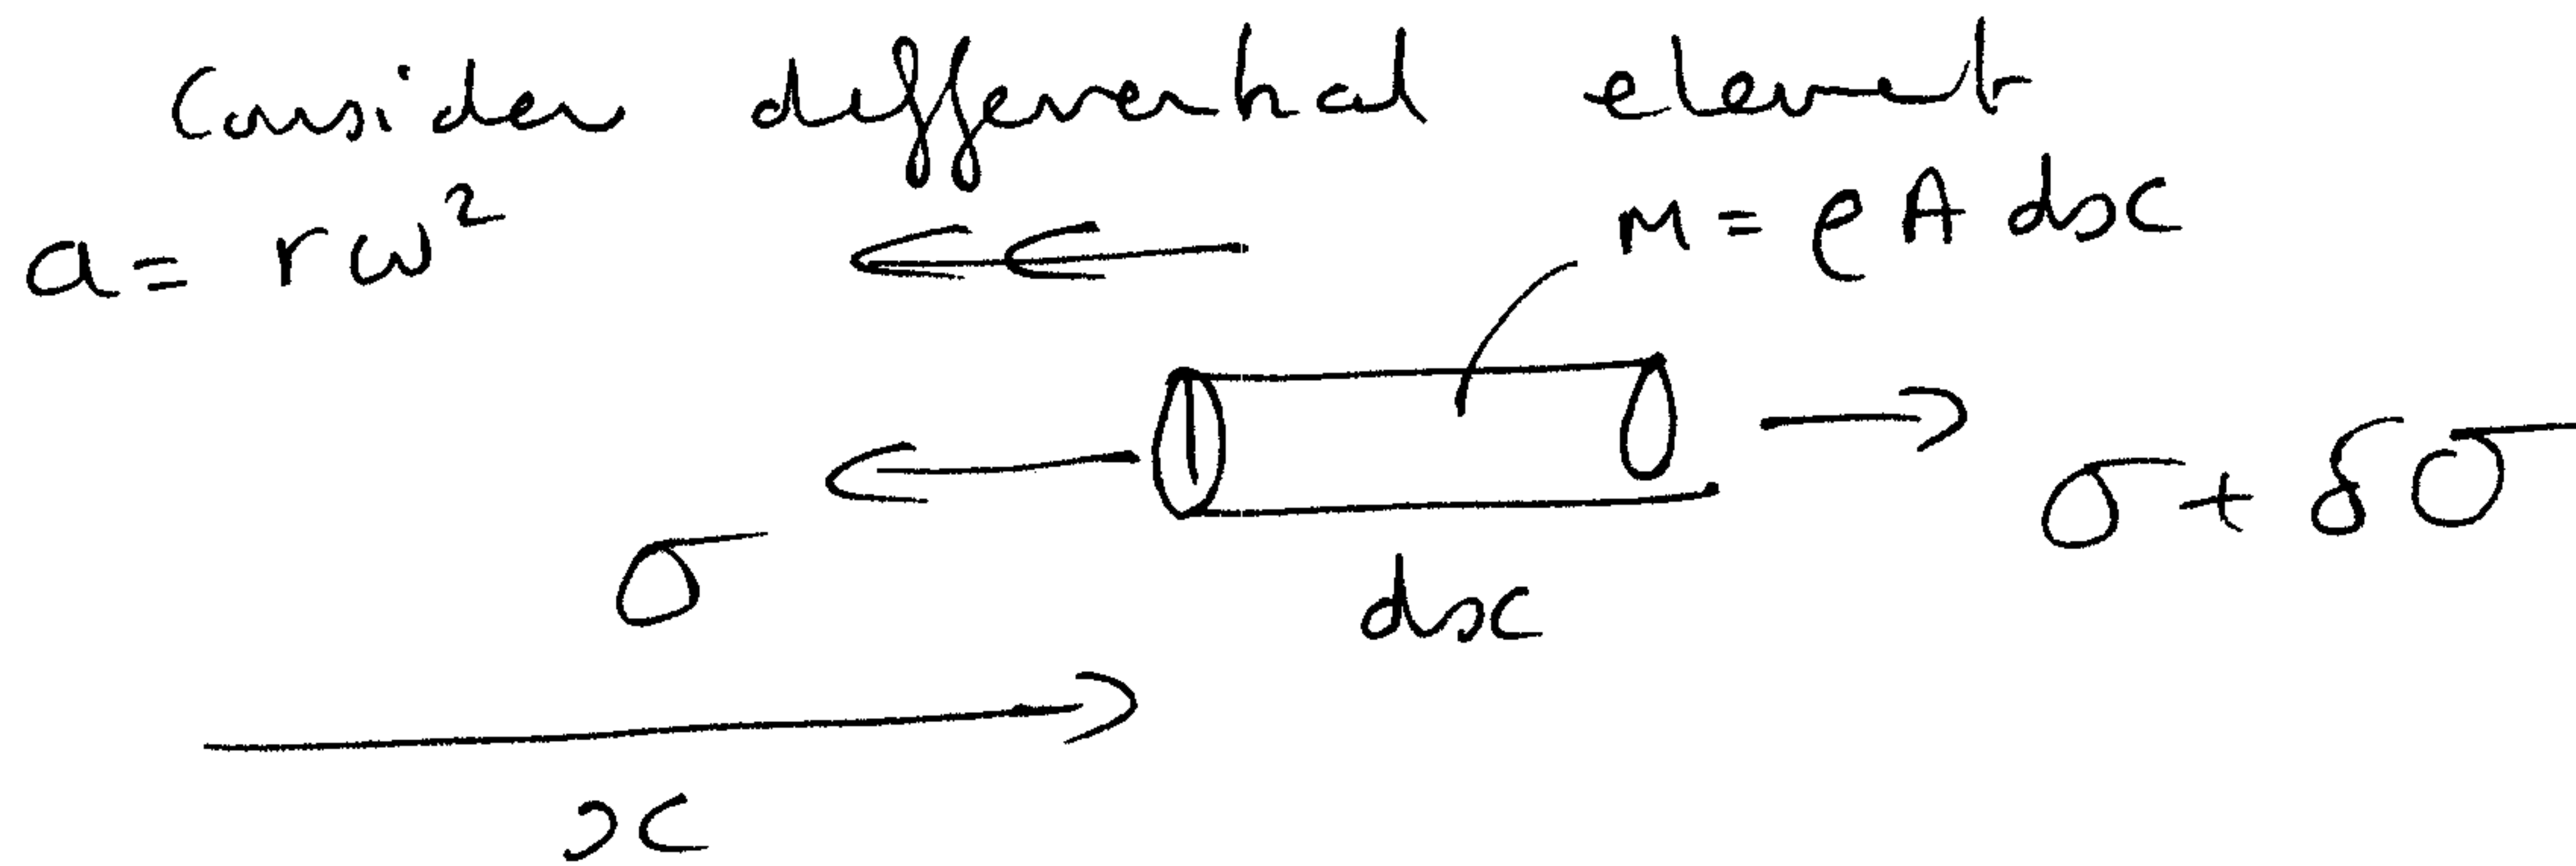 Consider differential element
a = rω²
M = ρ A dx
σ
σ + δσ
dx
x